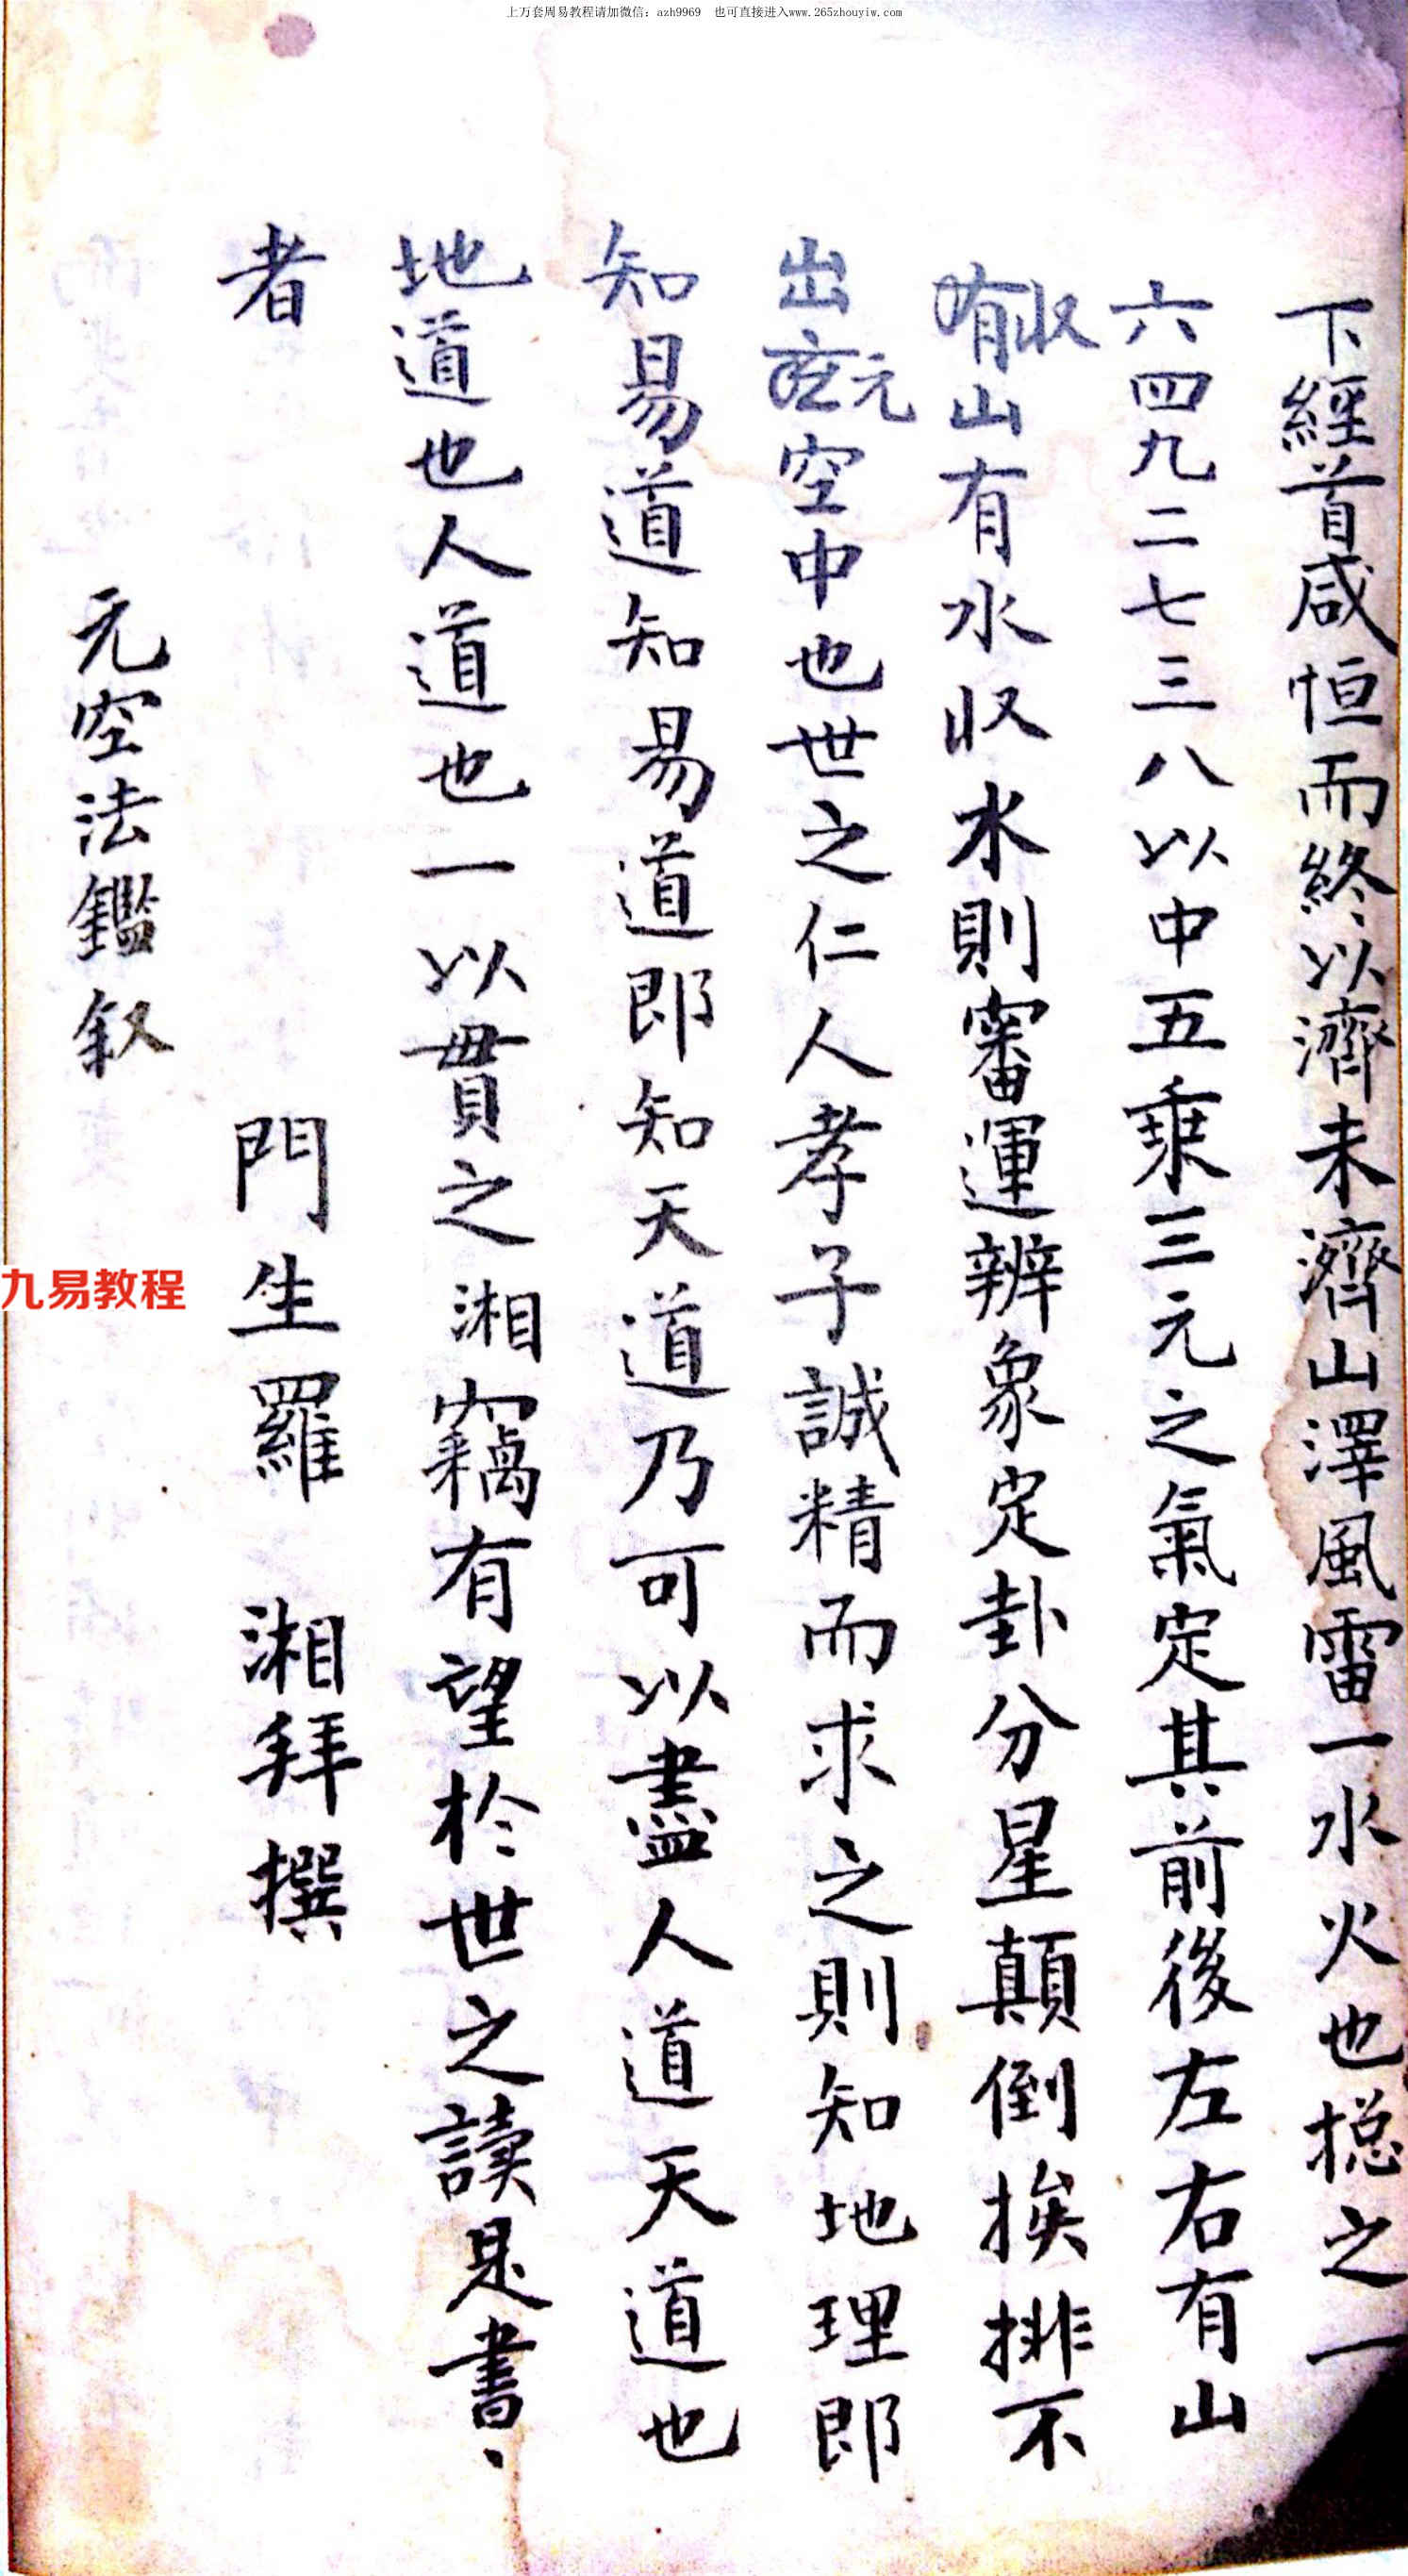 上万套周易教程请加微信：azh9969 也可直接进入www.265zhouyiw.com
下經首咸恒而終以濟未濟山澤風雷一水火也捴之一
六四九二七三八以中五乘三元之氣定其前後左右有山
收山有水収水則審運辨象定卦分星顛倒挨排不
出元空中也世之仁人孝子誠精而求之則知地理即
知易道知易道即知天道乃可以盡人道天道也
地道也人道也一以貫之湘竊有望於世之讀是書
者
門生羅 湘拜撰
元空法鑑叙
九易教程